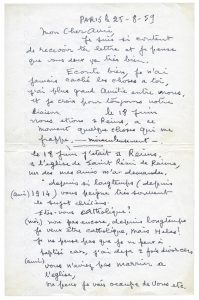 PARIS le 25-8-59
Mon Cher Ami
Je suis si content
de recevoir ta lettre et je pense
que vous soit ça très bien.
Ecoute bien, je n'ai
jamais caché les choses a toi,
j'ai plus grand Amitié entre nous,
et je crois pour toujours notre
liaison. Le 18 juin
nous étions a Reims, a ce
moment quelque choses qui me
frappe,
le 18 juin j'étais a Reims,
a l'église de Saint Rémi de Reims,
un des mes amis m'a demandé,
depuis si longtemps (depuis
1914) vous peigne très souvent
le sujet chrétien.
Etes-vous catholique!
(moi) non pas encore, depuis longtemps
je veux être catholique, mais Helas!
Je ne pense pas que je ne peux à
baptisé car, j'ai deja 2 fois divorces,
(ami) vous n'avez pas marrier a
l'église,
ne peux je vais occupe de vous etc.